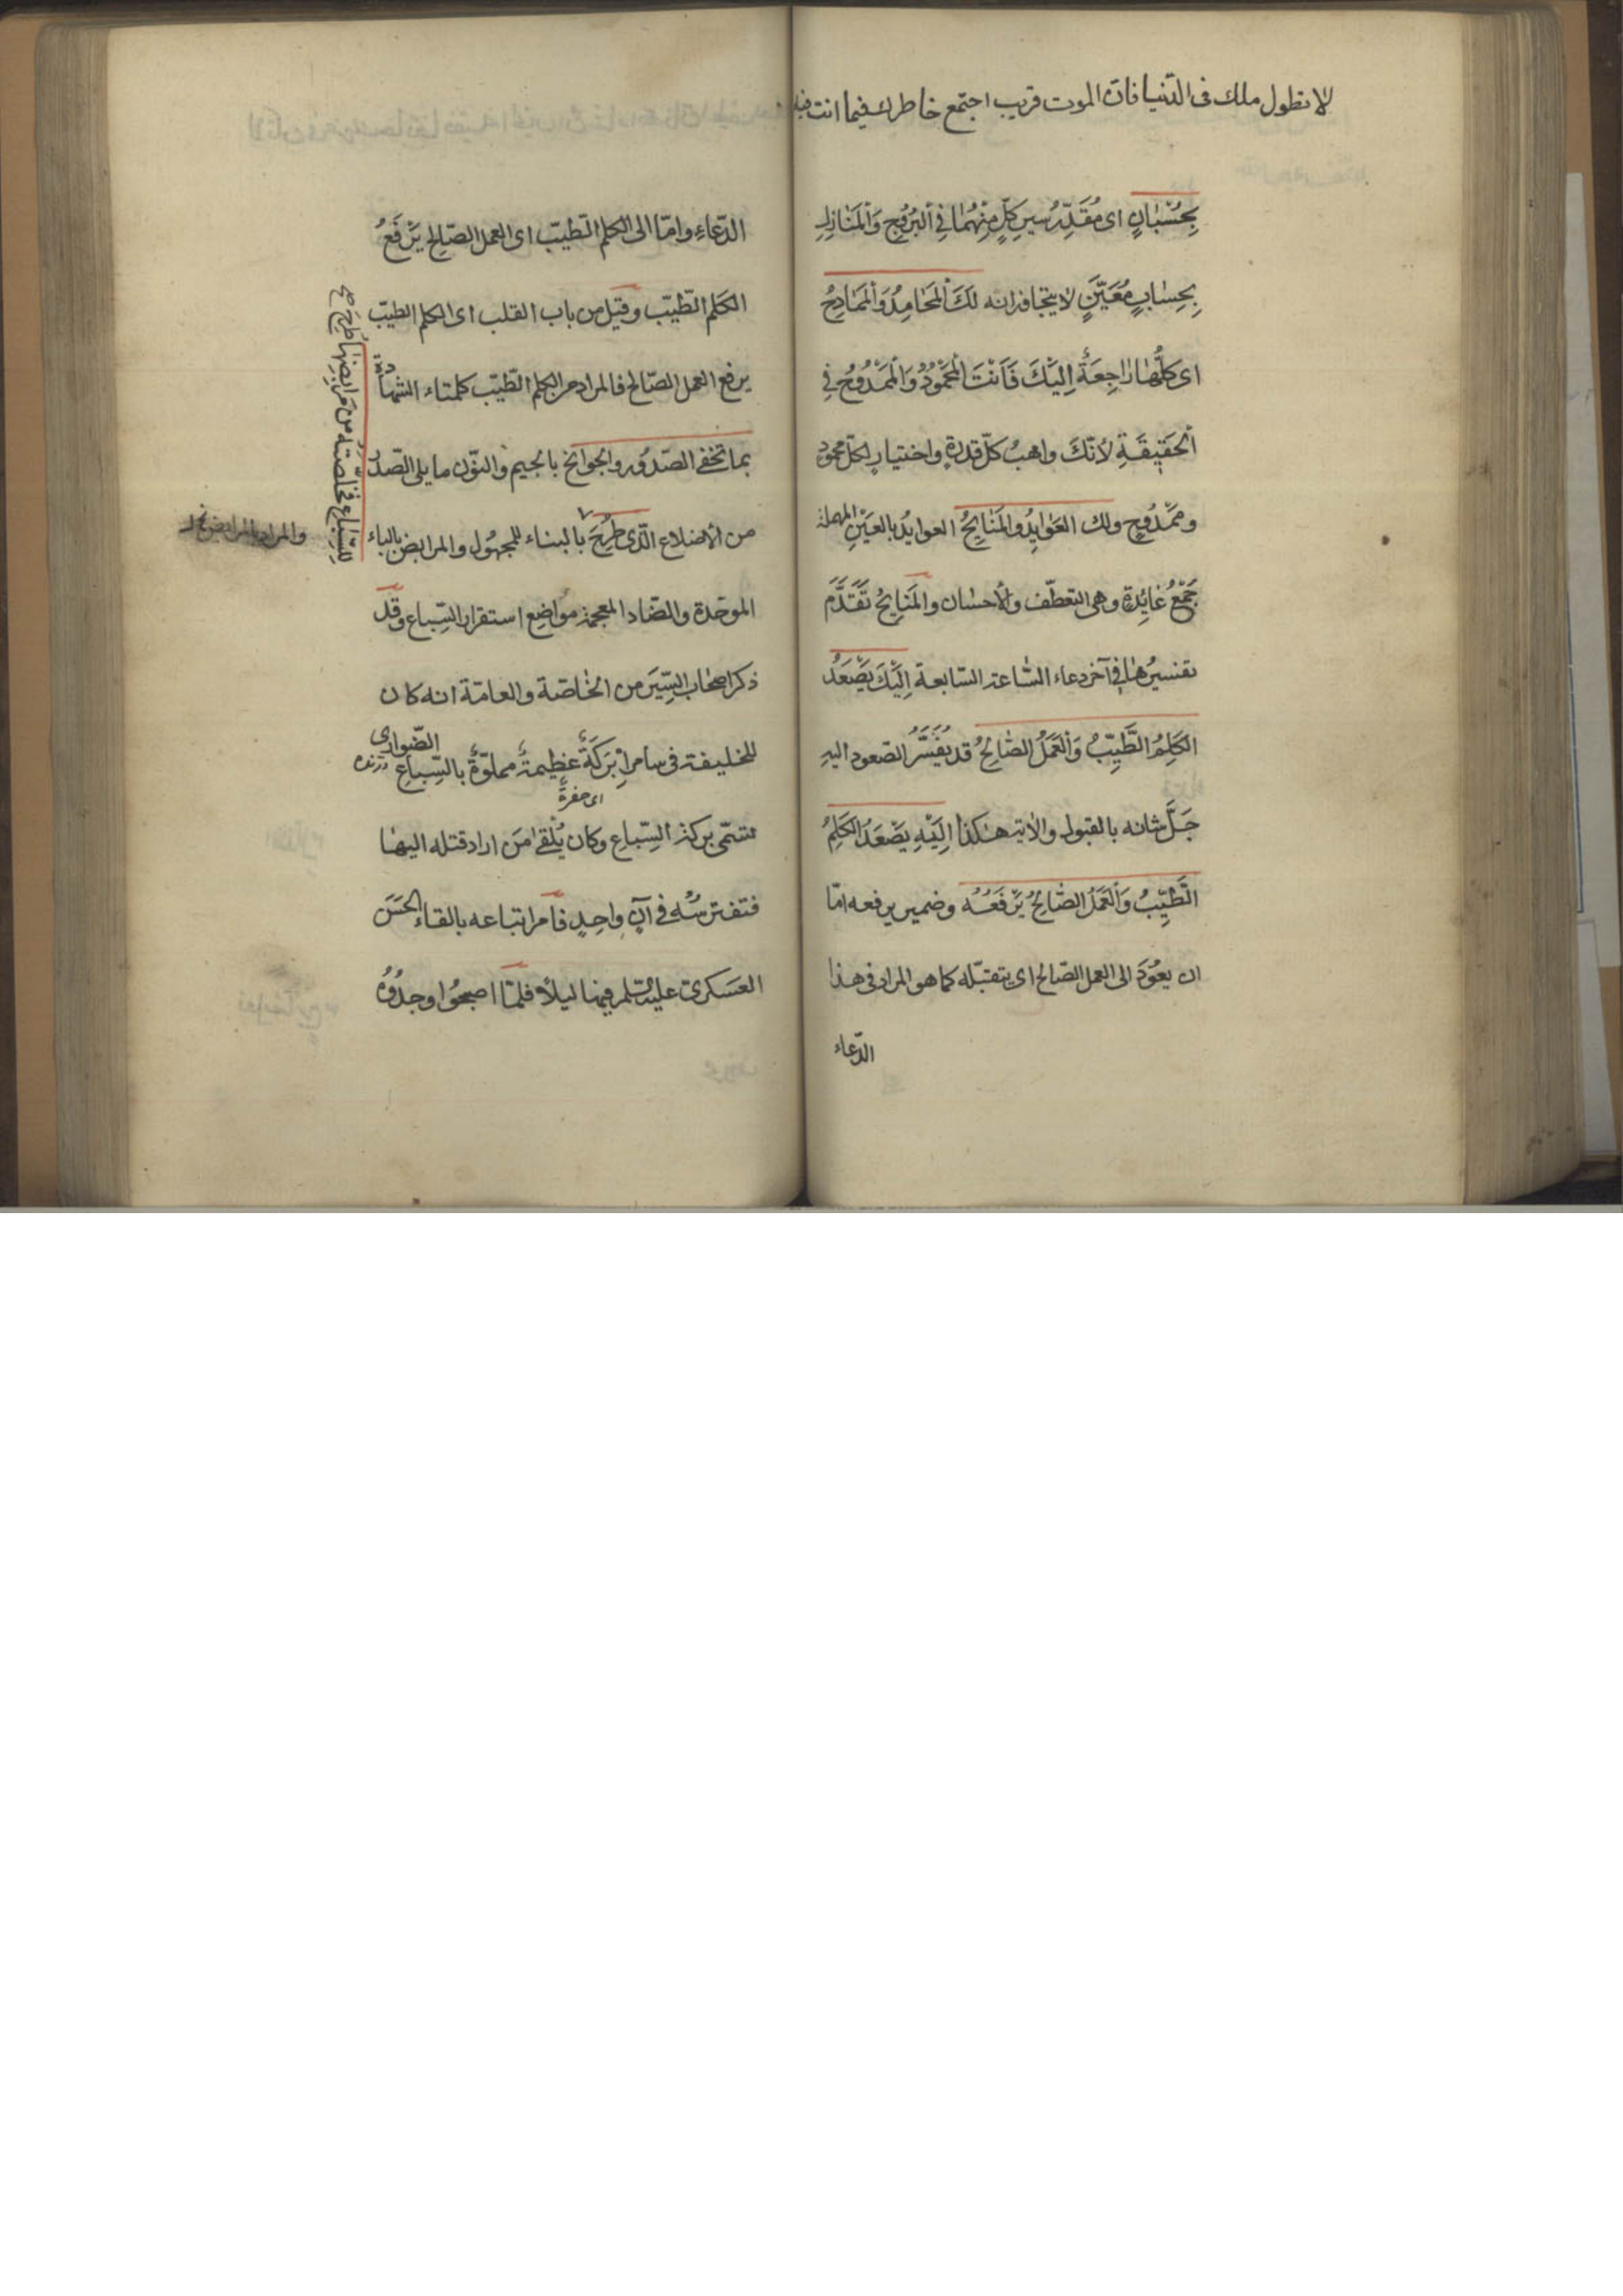 لا تطول ملك فى الدّنيا فانّ الموت قريب اجتمع خاطرك فيما انت فيه
بِحُسْبٰانٍ اى مُقَدِّرُ سيرِ كلٍّ مِنْهُمٰا فِي اَلبُرُوجِ وَالْمَنٰازِلِ
بِحِسٰابٍ مُعَيَّنٍ لا يتجٰافزانه لَكَ اَلْمَحٰامِدُ وَالْمَمٰادِحُ
اى كلُّهٰا رٰاجِعَةٌ اِلَيْكَ فَاَنْتَ اَلْمَحْمُوْدُ وَالْمَمْدُوْحُ فِي
اَلْحَقيٖقَةِ لاَنّكَ واهبُ كلّ قدرةٍ واختيارٍ لكلّ محمود
ومَمْدُوحٍ ولك العَوٰايِدُ والمَنٰايِحُ العوايدُ بالعَيْنِ المهملة
جَمْعُ عٰايِدَةٍ وهى التعطّف والاحسٰان والمَنٰايِحُ تَقَدَّمَ
تفسيرُهٰا فى آخر دعاء السّٰاعة السّابعة اِلَيْكَ يَصْعَدُ
الكَلِمُ الطَّيِّبُ وَالْعَمَلُ الصّٰالِحُ قد يُفَسَّرُ الصّعود اليهِ
جَلَّ شانه بالقبول والاٰية هٰكذا اِلَيْهِ يَصْعَدُ الكَلِمُ
الطَّيِّبُ وَالْعَمَلُ الصّٰالِحُ يَرْفَعُهُ وضمير يرفعه امّا
ان يعُوْدَ الى العمل الصّالح اى يتقبّله كما هو المراد فى هذا
الدّعاء
الدّعاءِ وامّا الى الكلم الطيّب اى العمل الصّالح يَرْفَعُ
الكَلم الطّيّب وقيْل من باب القلب اى الكلم الطيّب
يرفع العمل الصّالح فالمراد من الكلم الطّيّب كلمتاء الشهادة
بما تخفى الصّدُور والجوٰانح بالجيم والنّوْن ما يلى الصّدْر
من الأضلاع الّذى طُرِحَ بالبناء للمجهُول والمرابض بالباء
الموحّدة والضّاد المعجمة مواضع استقرار السِّباع وقد
ذكر اصحٰاب السِّيَر من الخٰاصّة والعامّة انه كان
للخليفة فى سامرا بْرَكَةٌ عظيمةٌ مملوّةٌ بالسِّباعِ الضّوارى
درنده
اى حفرة
تسمّى بركة السِّباعِ وكان يُلْقٰى مَن اراد قتله اليهٰا
فتفترسُهُ فى آنٍ واحدٍ فامر اتباعه بالقاء الحَسَن
العَسكرىّ عليه السّلم فيهٰا ليلاً فلمّا اصبحُوا وجدُوْهُ
للسّباع فخلّصته من مَرابضِهٰا طُرِحَ صح
والمراد بالمرابض